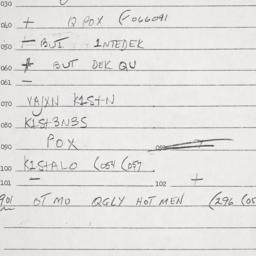 030
040 + Q POX (-066091
050 - BUT 1NTEDEK
060 + BUT DEK QU
061 -
070 VAIXN K1ST-N
080 K1ST3N3S
090 POX
100 K1STALO (054 (057
101 - 102 +
901 OT MO QGLY HOTMEN (296 (05